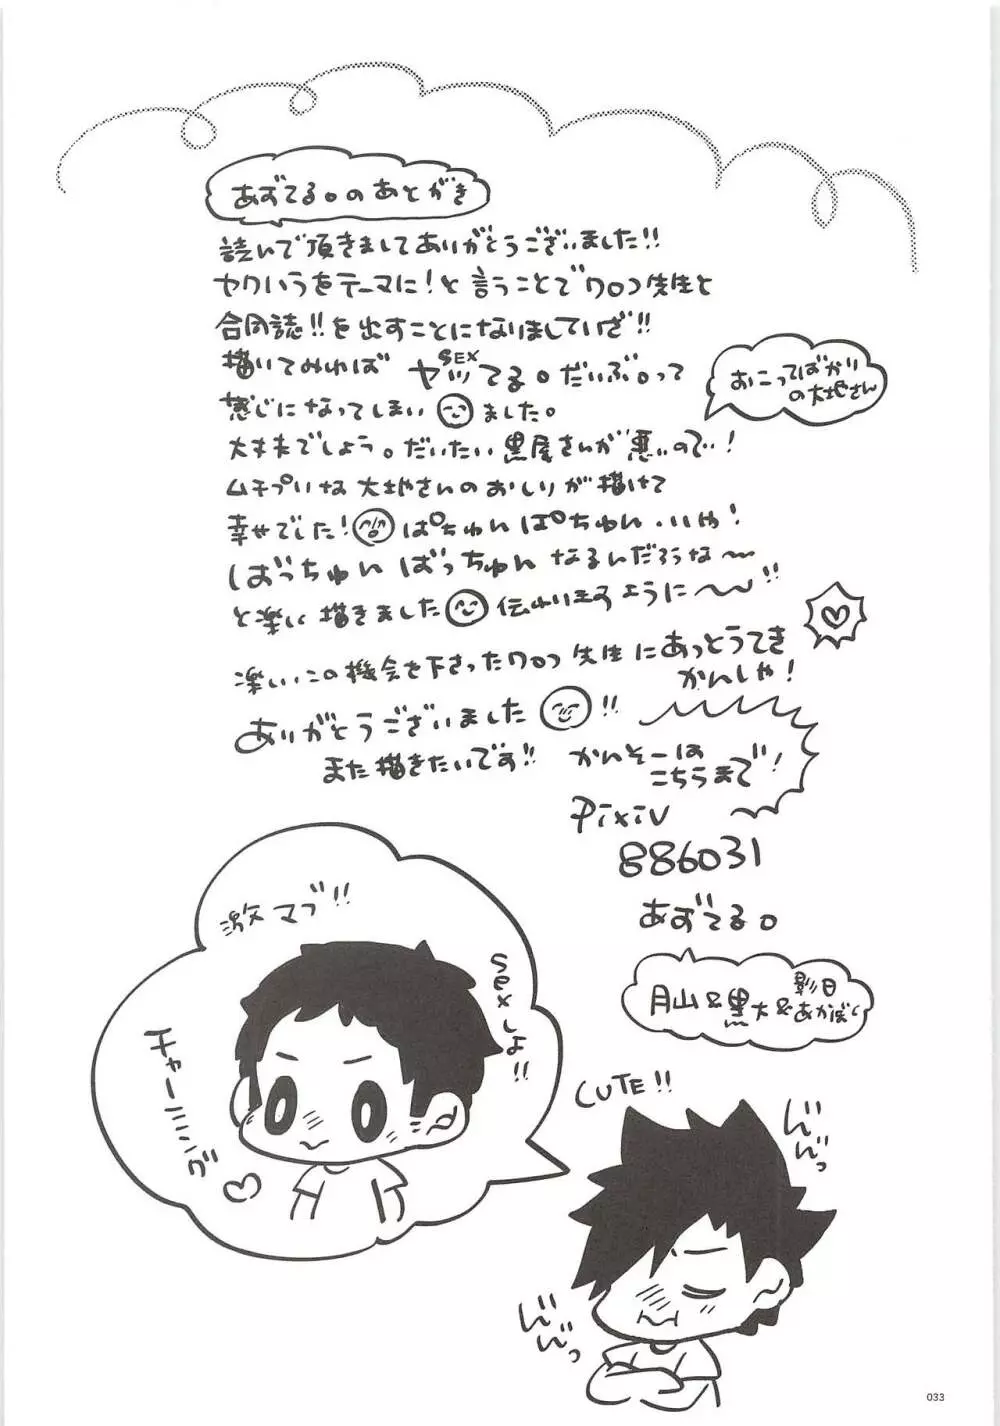 あずてる。のあとがき
読んで頂きましてありがとうございました!!
ヤクいうをテーマに!と言うことでワロコ先生と
合同誌!!を出すことになりましていざ!!
描いてみれば ヤッてる。だいぶ。って
SEX
感じになってしまいました。
おこってばかり
の大地さん
大丈夫でしょう。だいたい黒尾さんが悪いので!
ムチプリな大地さんのおしりが描けて
幸せでした!ぱちゅんぱちゅん・いや!
ばっちゅんばっちゅんなるんだろうな〜
と楽しい描きました伝わりますように〜!!
楽しいこの機会を下さったワロコ先生にあっとうてき
かんしゃ!
ありがとうございました!!
また描きたいです!!
かんそーは
こちらまで!
Pixiv
886031
あずてる。
月山&黒大&影日
あかぼく
激マブ!!
sexしよ!!
チャーミング
CUTE!!
んんっ
んんっ
033